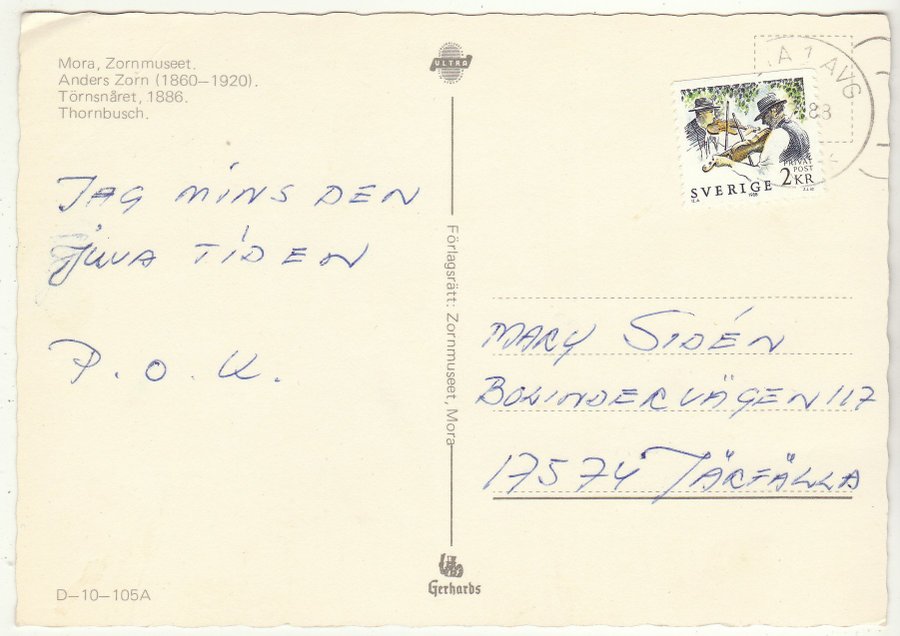 Mora, Zornmuseet.
Anders Zorn (1860—1920).
Törnsnåret, 1886.
Thornbusch.
ULTRA
A 1 AVG
88
PRIVAT
POST
SVERIGE 2KR
1988
JAG MINS DEN
LJUVA TIDEN
P.O.K.
Förlagsrätt: Zornmuseet, Mora
MARY SIDÉN
BOLINDERVÄGEN 117
17574 JÄRFÄLLA
Gerhards
D—10—105A